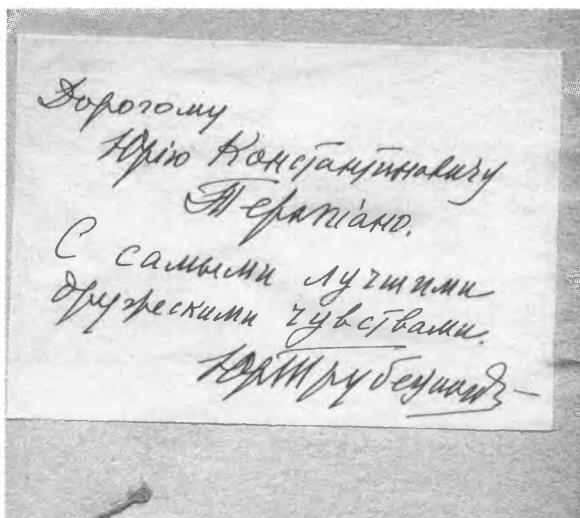 Дорогому
Юрію Константиновичу
Терапіано.
С самыми лучшими
дружескими чувствами.
Юр Трубецкой